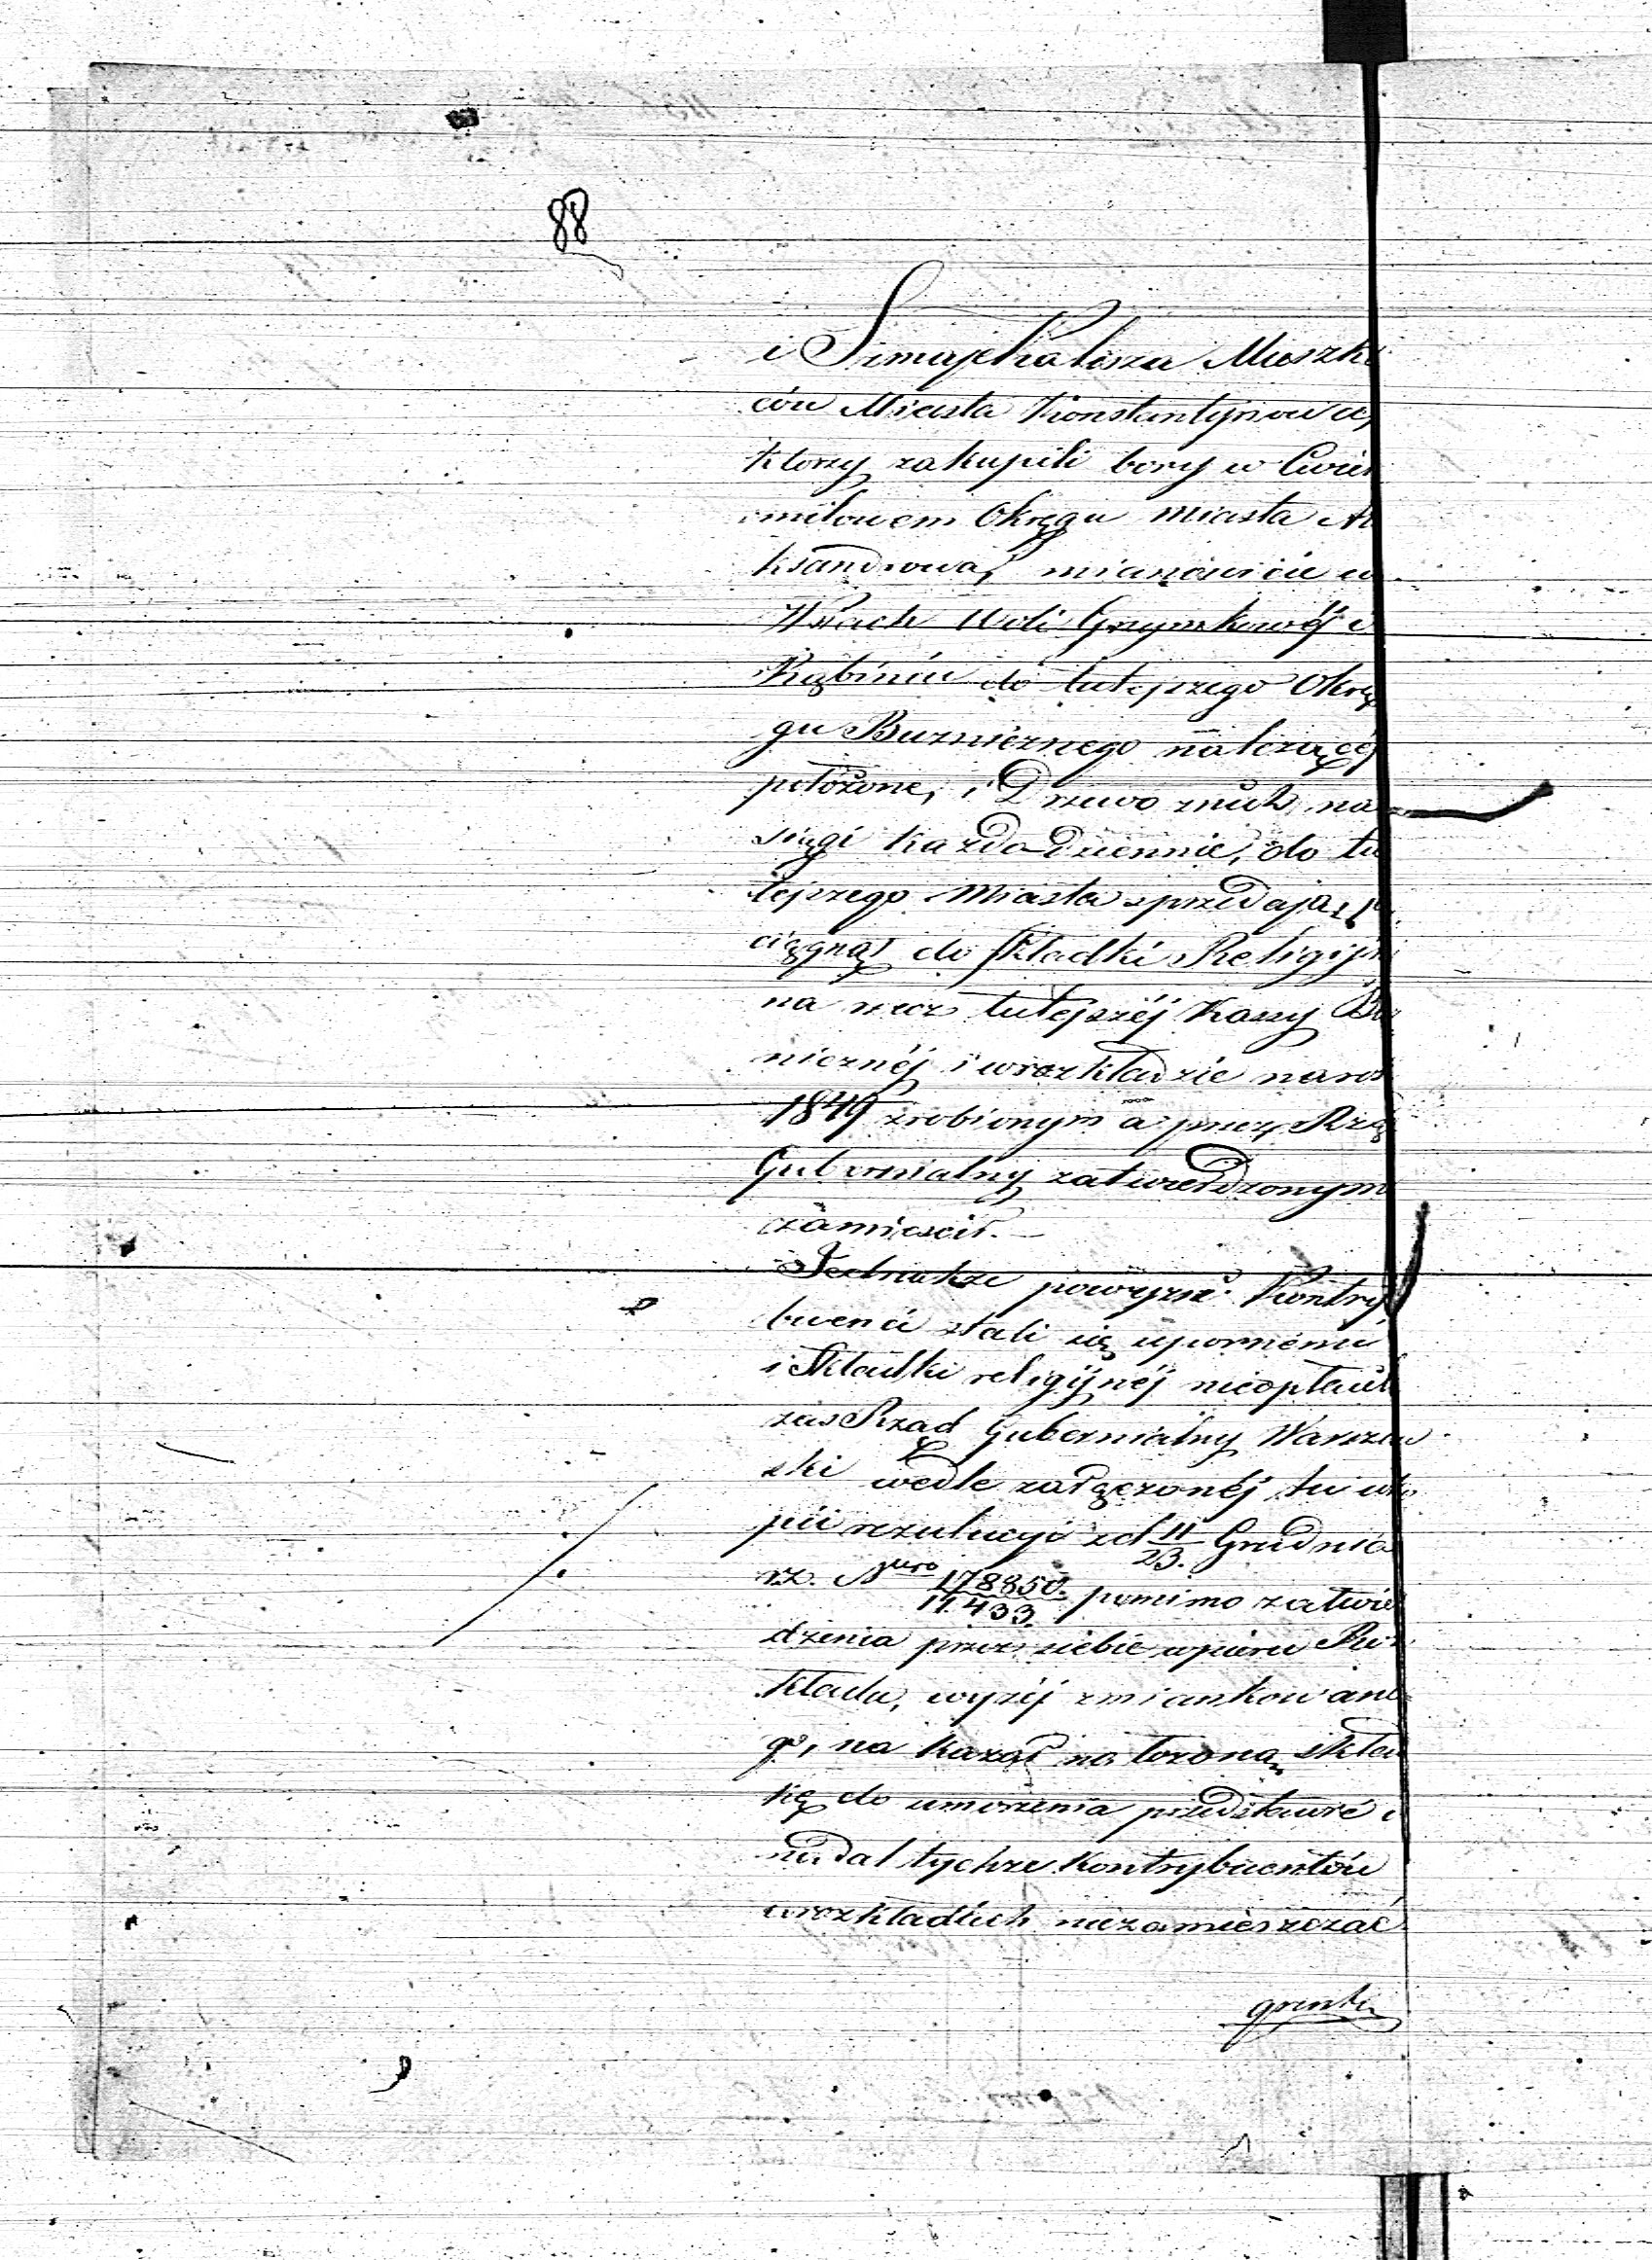 88
i Szmaje Kalisza Mieszkań
ców Miasta Konstantynowa,
którzy zakupili bory w Ćwier
ćmilowem Okręgu miasta Al
ksandrowa, mianowicie w
Wsiach Woli Grzymkowéj i
Rąbiniu do tutejszego Okrę
gu Bużnicznego należącej
położone, i Drzewo z nich na
siągi każdodziennie, do tu
tejszego Miasta sprzedają,
ciągnął do składki Religijn
na rzecz tutejszéj Kassy Bóż
nicznéj i w rozkładzie na rok
1849 zrobionym a przez Rząd
Gubernialny zatwierdzonym
zamieścił. —
Jednakże powyżsi Kontry
buenci stali się upornemi
i Składki religijnéj nieopłacili
zaś Rząd Gubernialny Warszaw
ski wedle załączonéj tu w ko
pii rezolucyi z d 11/23. Grudnia
r.z. Nuro 178850./11.433. pomimo zatwier
dzenia przez siebie wpierw Roz
kładu, wyżéj zmiankowane
go, nakazał nałożoną skład
kę do umorzenia przedstawić i
nadal tychże Kontrybuentów
w rozkładach niezamieszczać